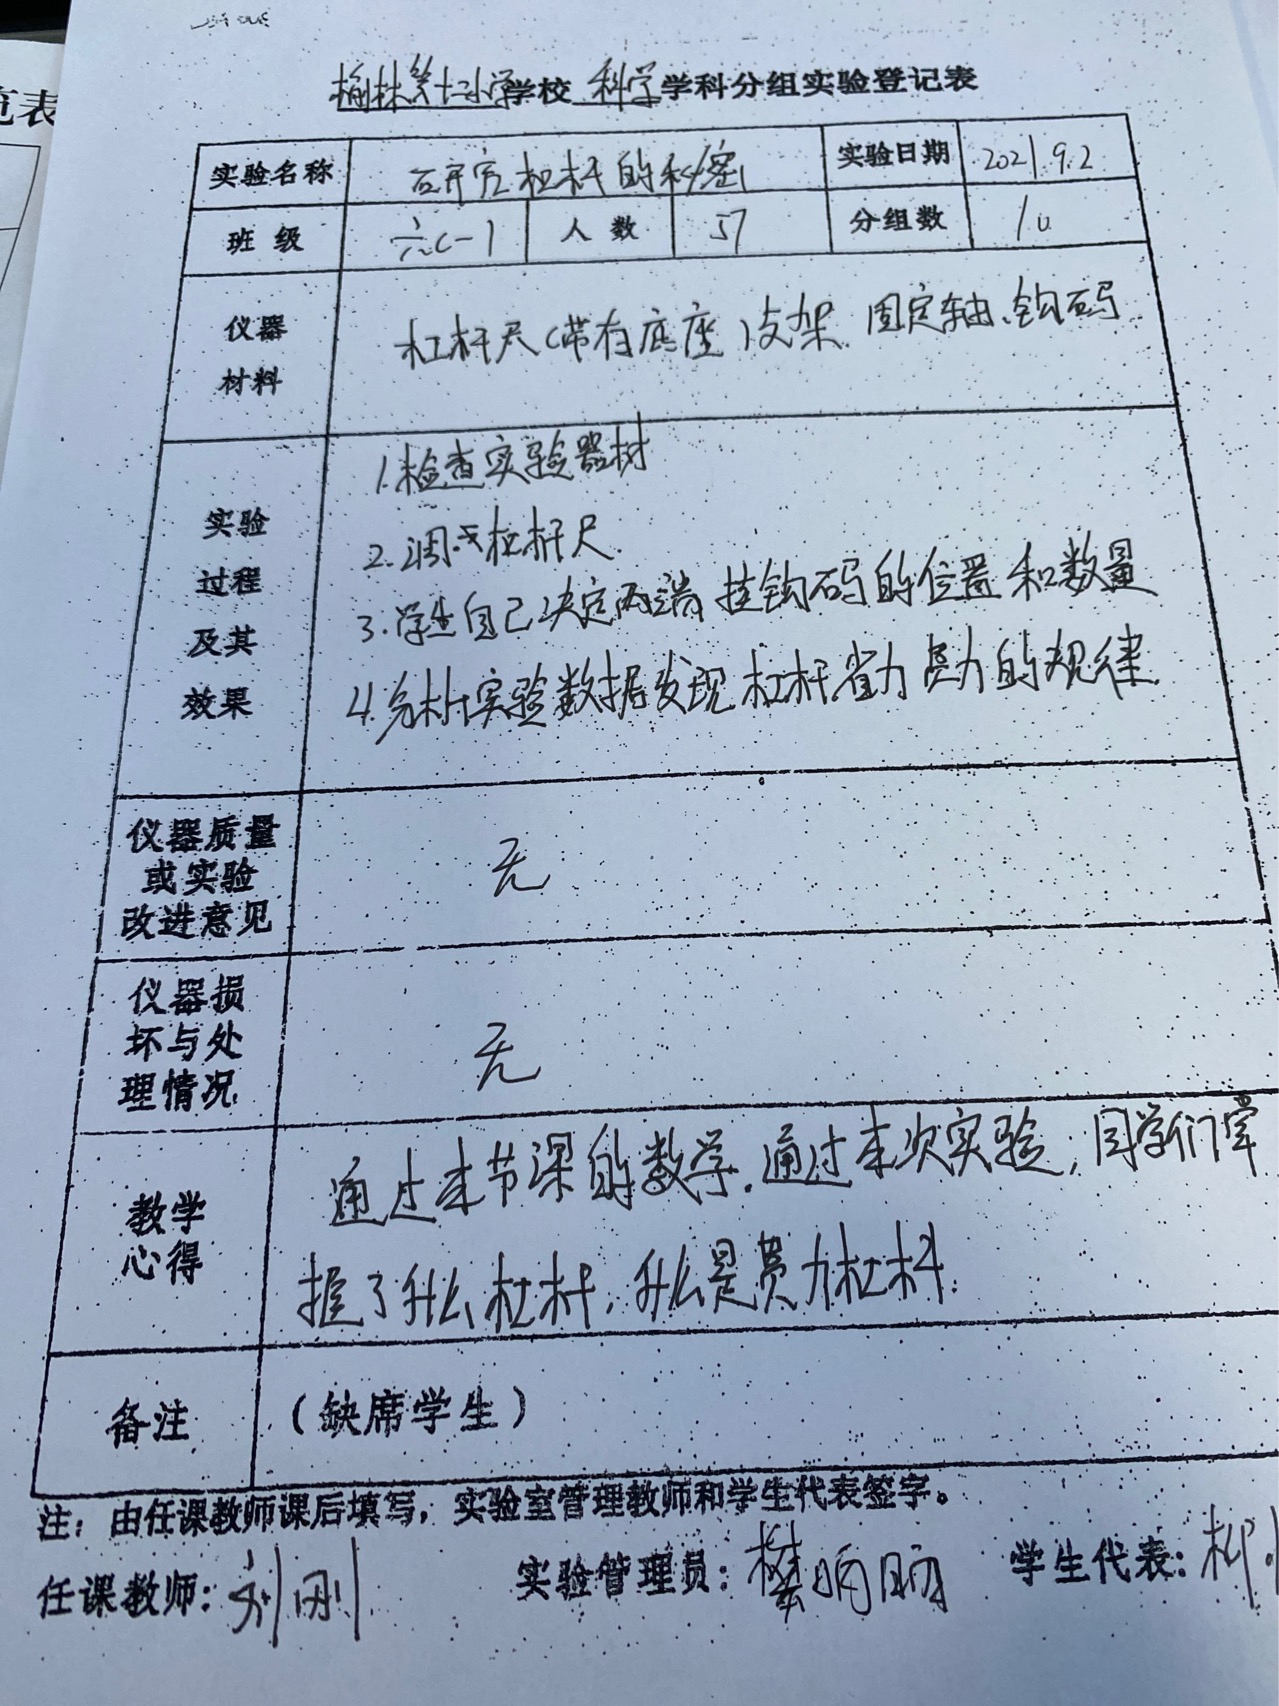 范表
榆林第十二小学学校 科学学科分组实验登记表
实验名称 研究杠杆的秘密 实验日期 2021.9.2
班级 六(-) 人数 57 分组数 10
仪器
材料
杠杆尺(带有底座)支架.固定轴、钩码
实验
过程
及其
效果
1.检查实验器材
2.调杠杆尺.
3.学生自己决定两端挂钩码的位置和数量
4.分析实验数据发现杠杆省力费力的规律.
仪器质量
或实验
改进意见
无
仪器损
坏与处
理情况
无
教学
心得
通过本节课的教学.通过本次实验,同学们掌
握了什么杠杆,什么是费力杠杆.
备注 (缺席学生)
注:由任课教师课后填写,实验室管理教师和学生代表签字。
任课教师:刘刚 实验管理员:樊 学生代表:柳